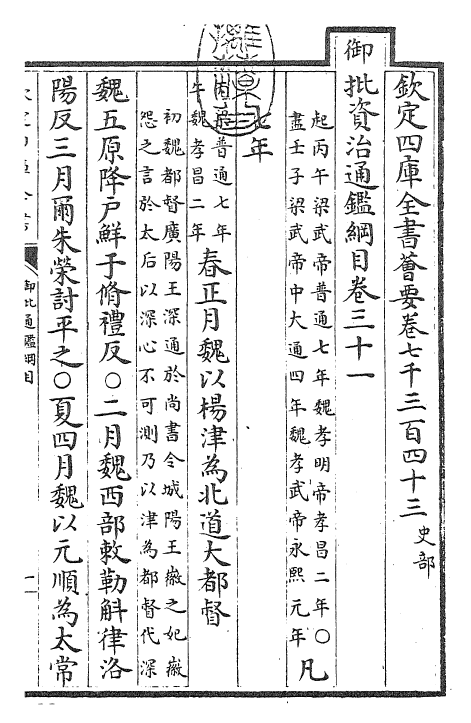 欽定四庫全書薈要卷七千三百四十三 史部
御批資治通鑑綱目卷三十一
起丙午梁武帝普通七年魏孝明帝孝昌二年〇
盡壬子梁武帝中大通四年魏孝武帝永熙元年
凡七年
普通七年
午魏孝昌二年
春正月魏以楊津為北道大都督
初魏都督廣陽王深通於尚書令城陽王徽之妃徽
怨之言於太后以深心不可測乃以津為都督代深
魏五原降戶鮮于脩禮反〇二月魏西部敕勒斛律洛
陽反三月爾朱榮討平之〇夏四月魏以元順為太常
御批通鑑綱目